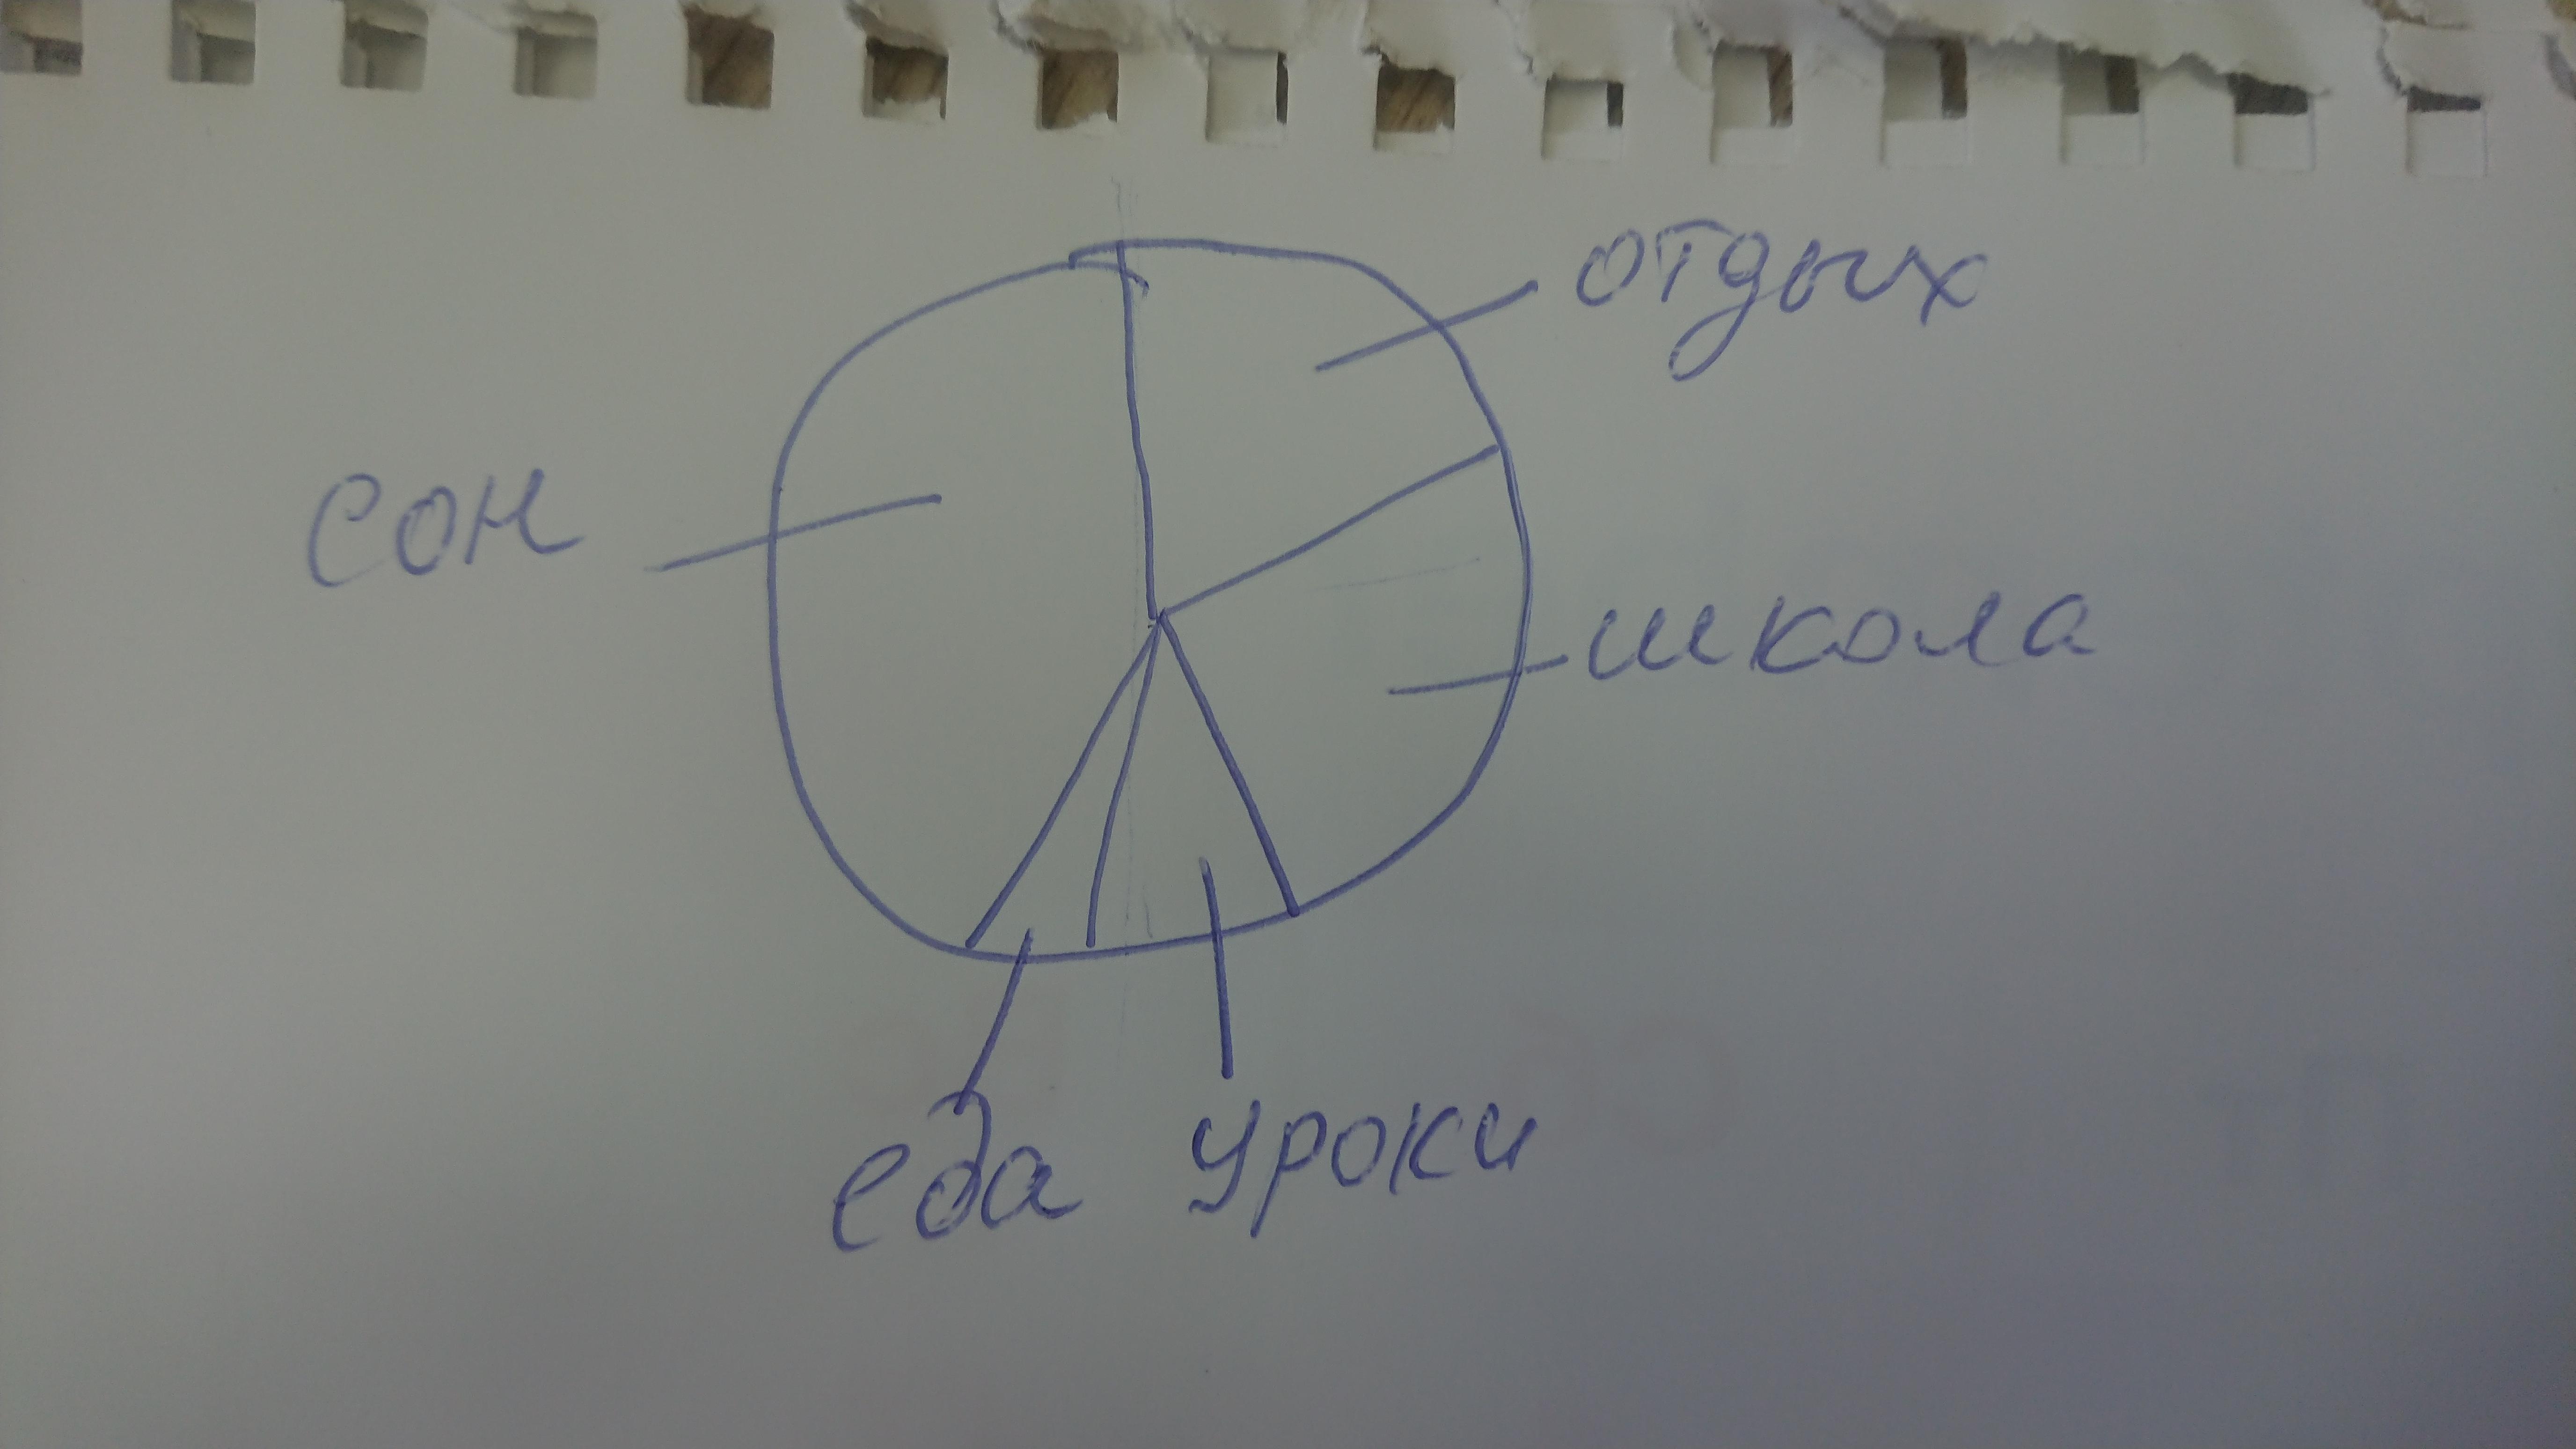 отдых
сон
школа
еда уроки